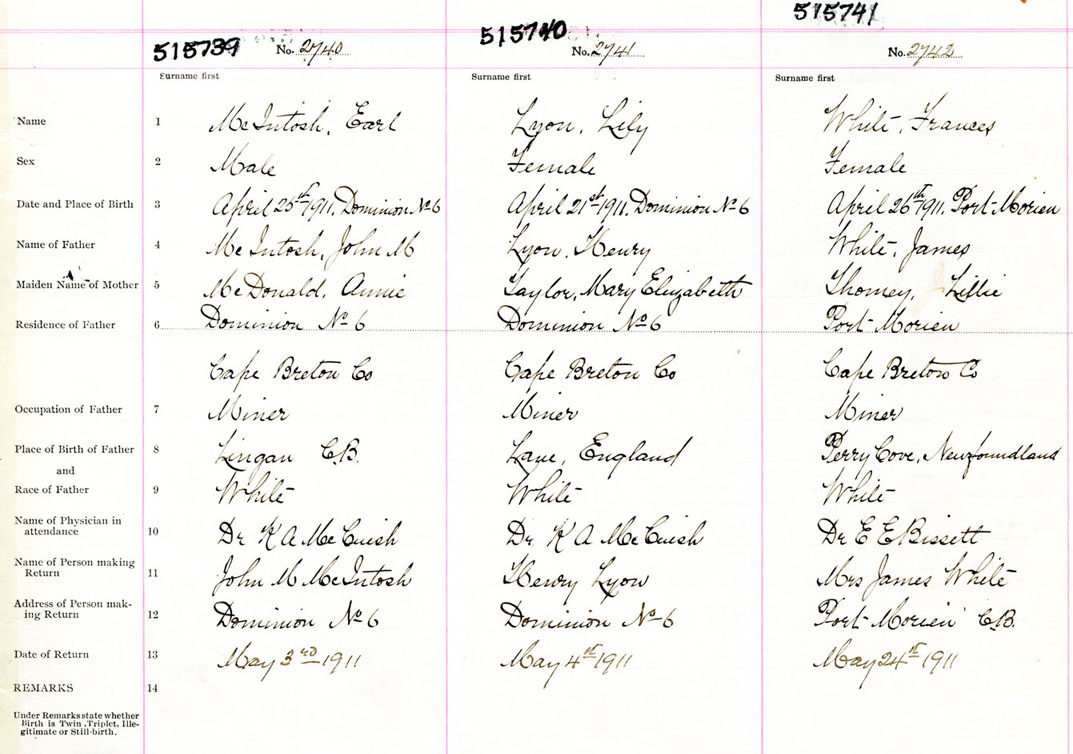 515739 No. 2740 515740 No. 2741 515741 No. 2742
Surname first Surname first Surname first
Name 1 McIntosh, Earl Lyon, Lily White, Frances
Sex 2 Male Female Female
Date and Place of Birth 3 April 25th 1911, Dominion No 6 April 21st 1911, Dominion No 6 April 26th 1911, Port Morien
Name of Father 4 McIntosh, John M Lyon, Henry White, James
Maiden Name of Mother 5 McDonald, Annie Taylor, Mary Elizabeth Thomey, Lillie
Residence of Father 6 Dominion No 6 Dominion No 6 Port Morien
Cape Breton Co Cape Breton Co Cape Breton Co
Occupation of Father 7 Miner Miner Miner
Place of Birth of Father 8 Lingan C.B. England Perry Cove, Newfoundland
and
Race of Father 9 White White White
Name of Physician in
attendance 10 Dr K A McCuish Dr K A McCuish Dr E E Bissett
Name of Person making
Return 11 John M McIntosh Henry Lyon Mrs James White
Address of Person mak-
ing Return 12 Dominion No 6 Dominion No 6 Port Morien C.B.
Date of Return 13 May 3rd 1911 May 4th 1911 May 24th 1911
REMARKS 14
Under Remarks state whether
Birth is Twin, Triplet, Ille-
gitimate or Still-birth.